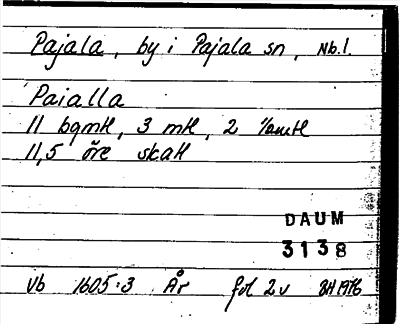 Pajala, by i Pajala sn, Nb.l.
Paialla
11 bgmtl, 3 mtl, 2
11,5 öre skatt
DAUM
3138
Vb 1605:3 År fol 2v BH 1976